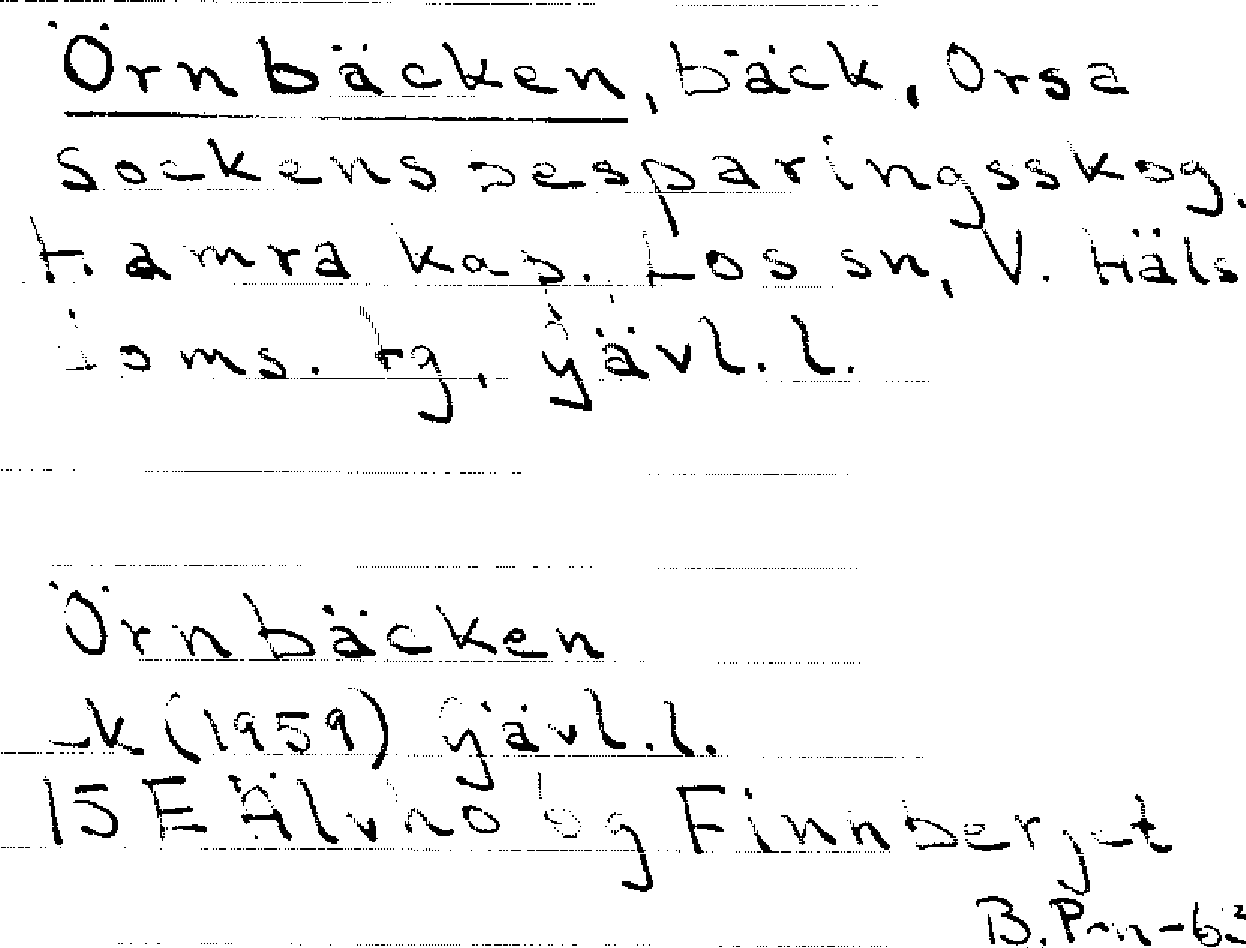 Örnbäcken, bäck, Orsa
sockens besparingsskog.
Hamra kap. Los sn, V. Häls
doms. tg, Gävl. l.
Örnbäcken
Ek (1959) Gävl. l.
15 E Älvho og Finnberget